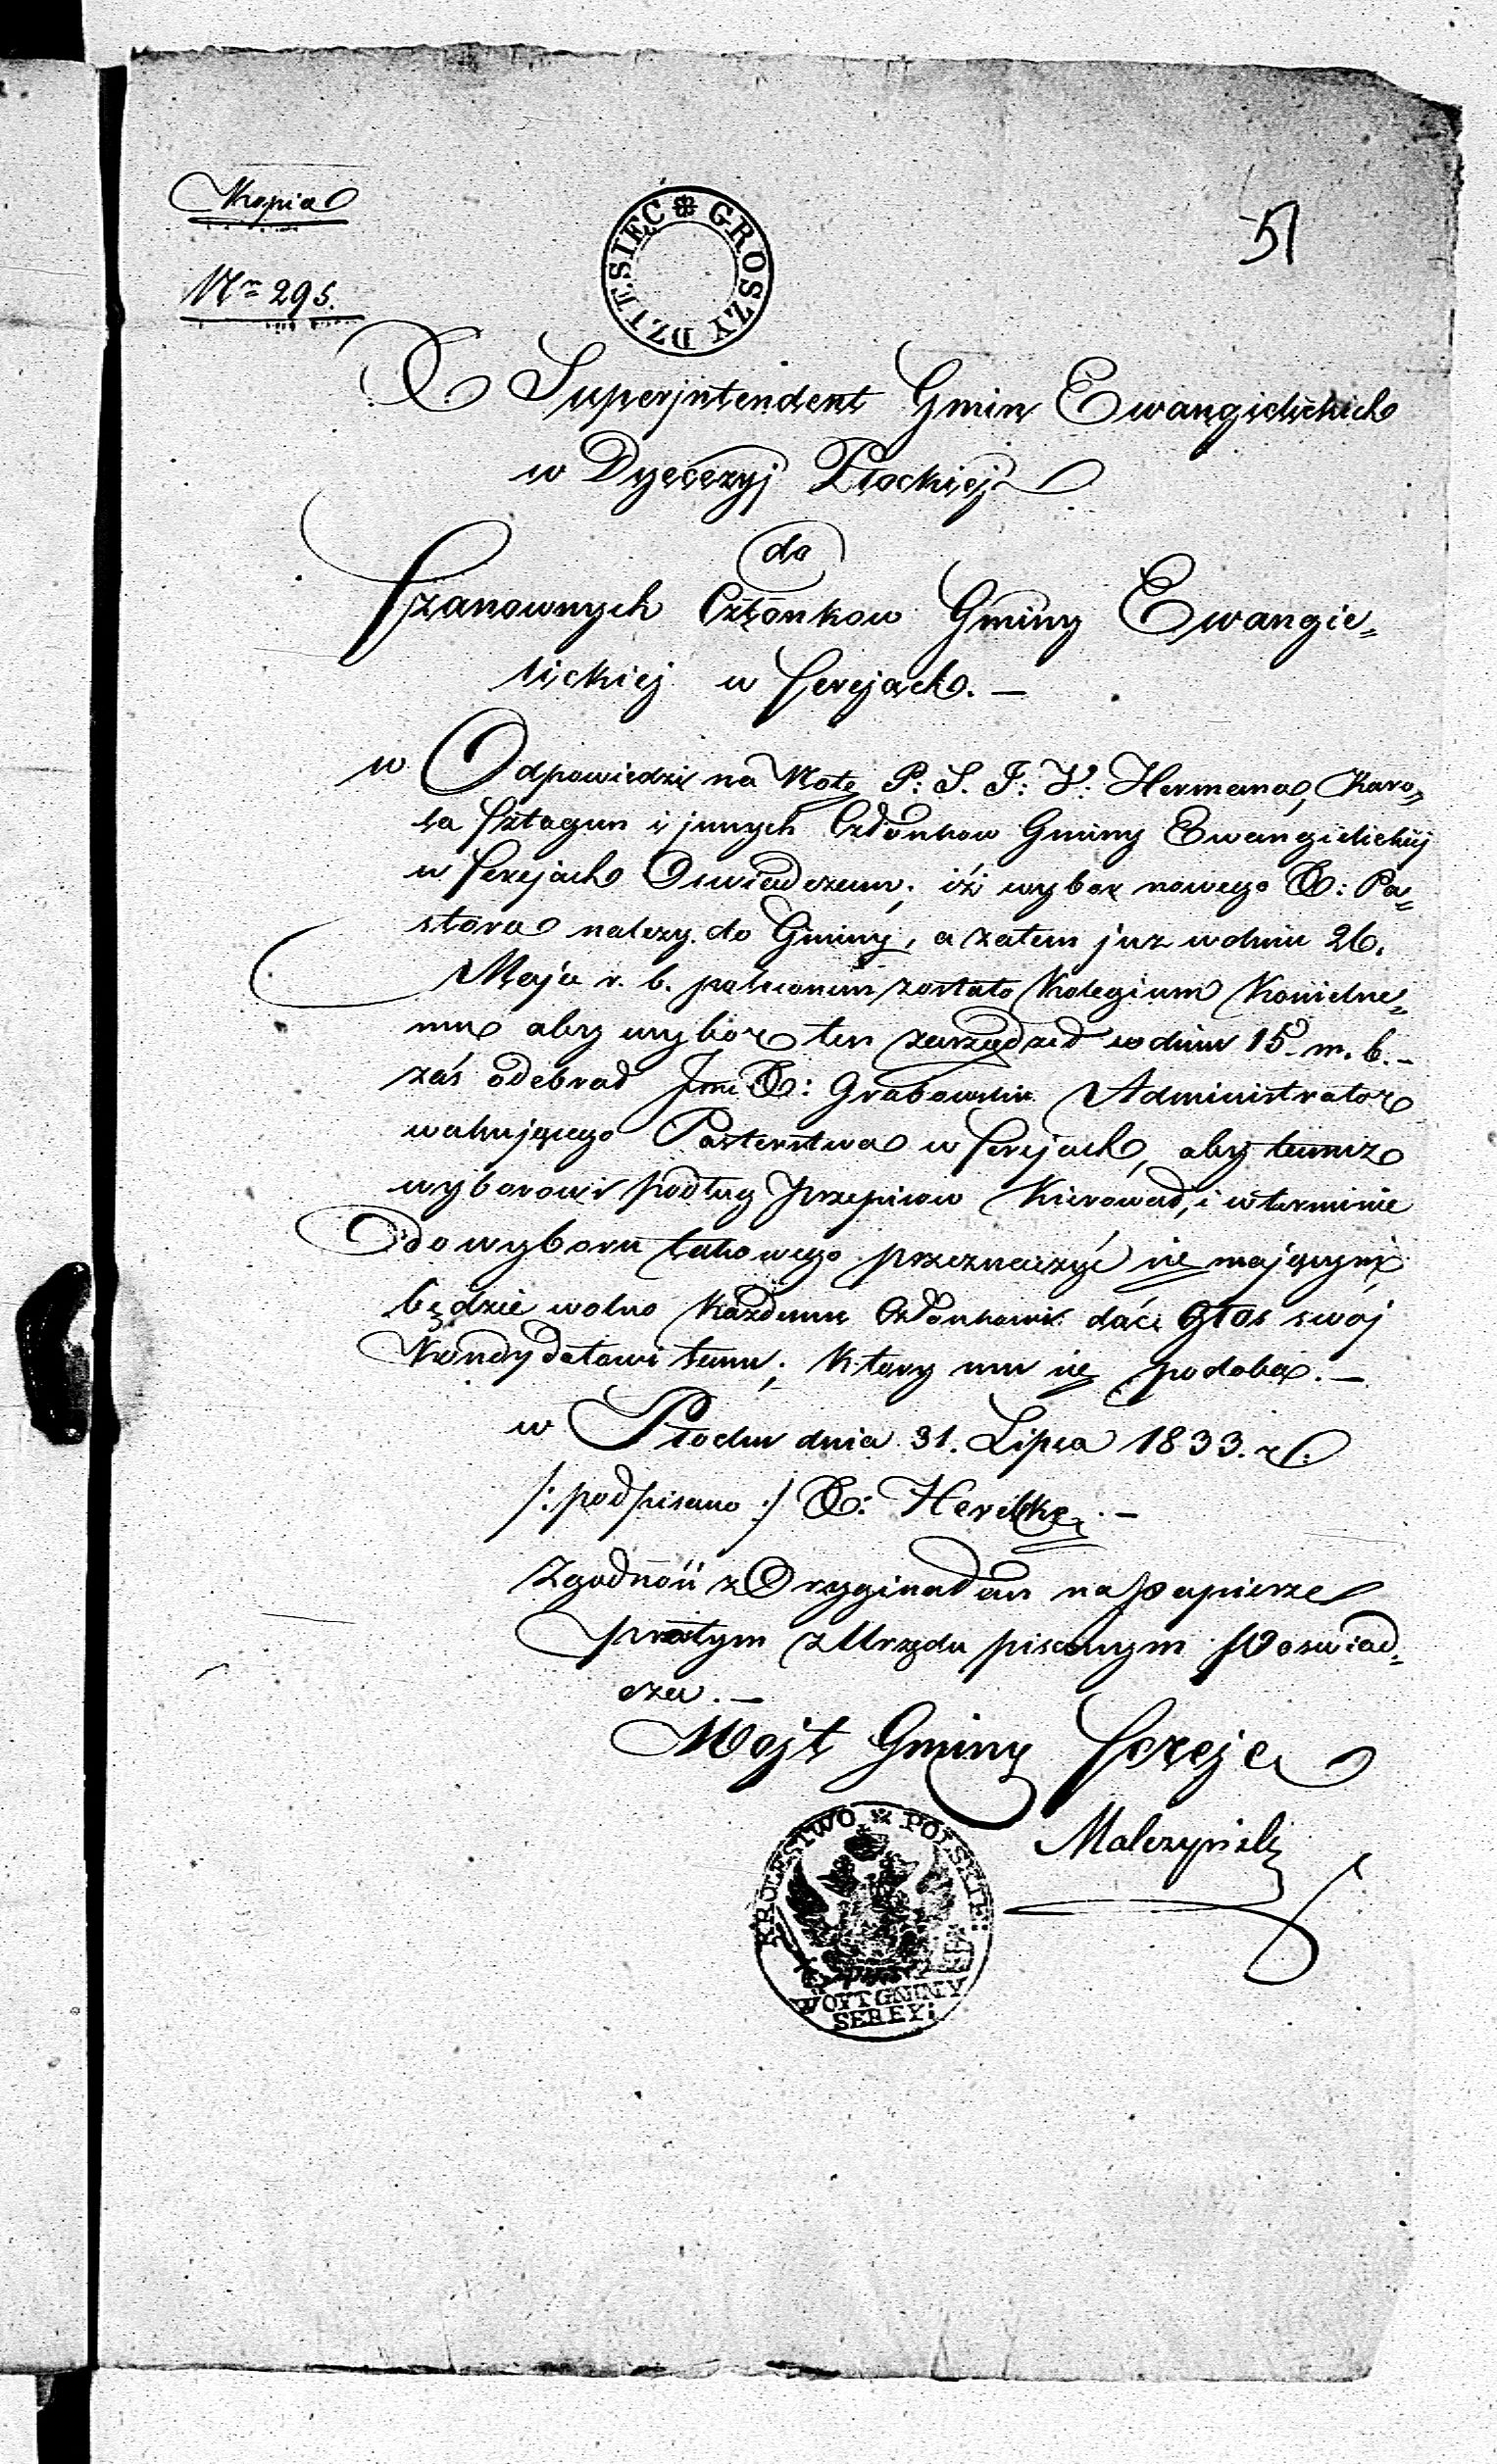 Kopia
51
Nro 295.
DZIESIĘC GROSZY
X Superjntendent Gmin Ewangielickich
w Dyecezyj Płockiej
do
Szanownych Członkow Gminy Ewangie„
lickiej w Serejach. —
w Odpowiedzi na Notę P: S. F: V: Hermana, Karo„
la Sztagun i jnnych Członkow Gminy Ewangielickiej
w Serejach Oswiadczam; iż wybor nowego X: Pa„
stora nalezy do Gminy, a zatem juz w dniu 26.
Maja r. b. poleconem zostało Kolegium Koscielne„
mu aby wybor ten zarządził w dniu 15. m. b. —
zaś odebrał Jmc X: Grabowski Administrator
wakującego Pasterstwa w Serejach, aby temuz
wyborowi podług Przepisow Kierował, i w terminie
do wyboru takowego przeznaczyć się mającym
będzie wolno Każdemu Członkowi dać głos swój
Kandydatowi temu; Ktory mu się podoba. —
w Płocku dnia 31. Lipca 1833. r.
/: podpisano :/ X: Herilke. —
Zgodność z Oryginałem na Papierze
prostym z Urzędu pisanym Poswiad„
cza. —
Wojt Gminy Sereje
KROLESTWO POLSKIE:
WOYT GMINY
SEREYi